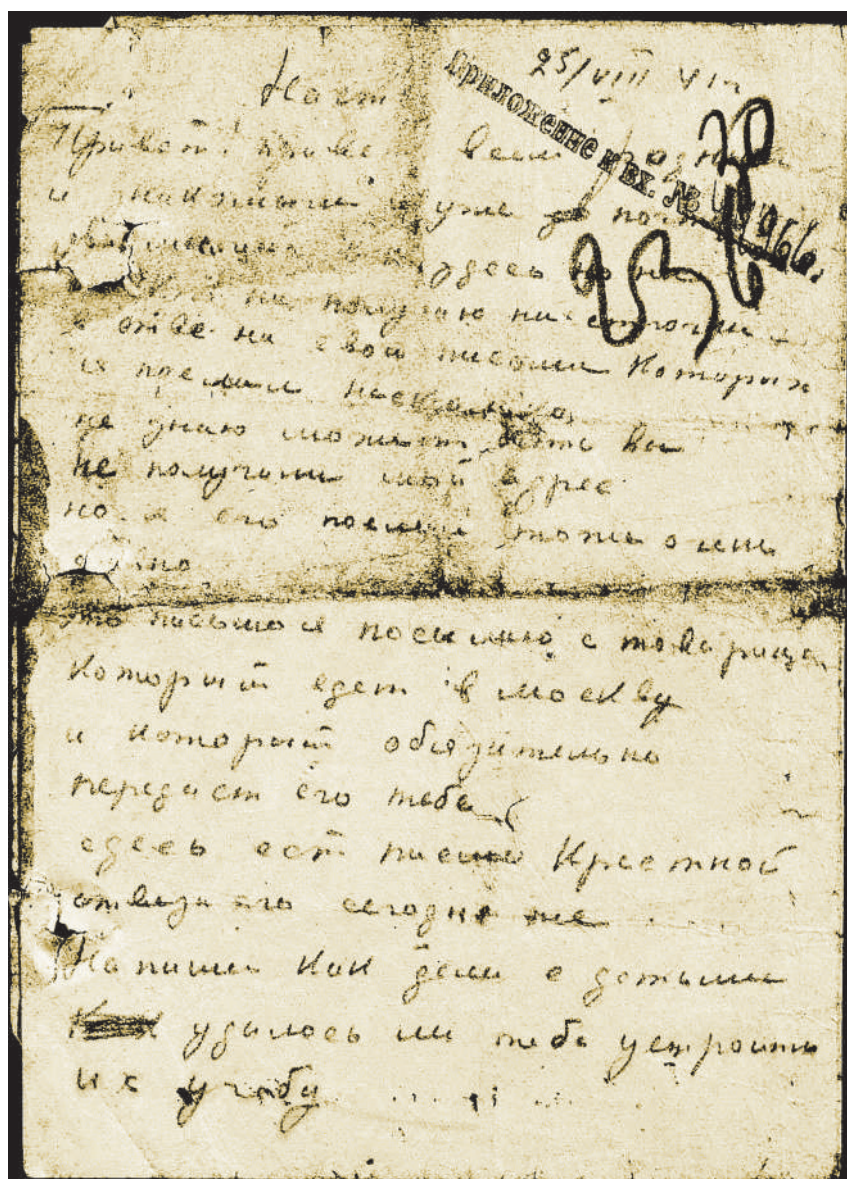 25/VIII 41 г
Приложение к вх. №
Привет! привет всем родным
и знакомым я уже почти
здесь но ни
не получаю ни строчки
в ответ на свои письма которых
я послал несколько,
не знаю может быть вы
не получили мой адрес
но я его послал тоже очень
давно
это письмо я посылаю с товарищем
который едет в москву
и который обязательно
передаст его тебе
здесь ест писмо Крестной
отвези его сегодня же
Напиши как дела с детьми
удалось ли тебе устроить
их учебу